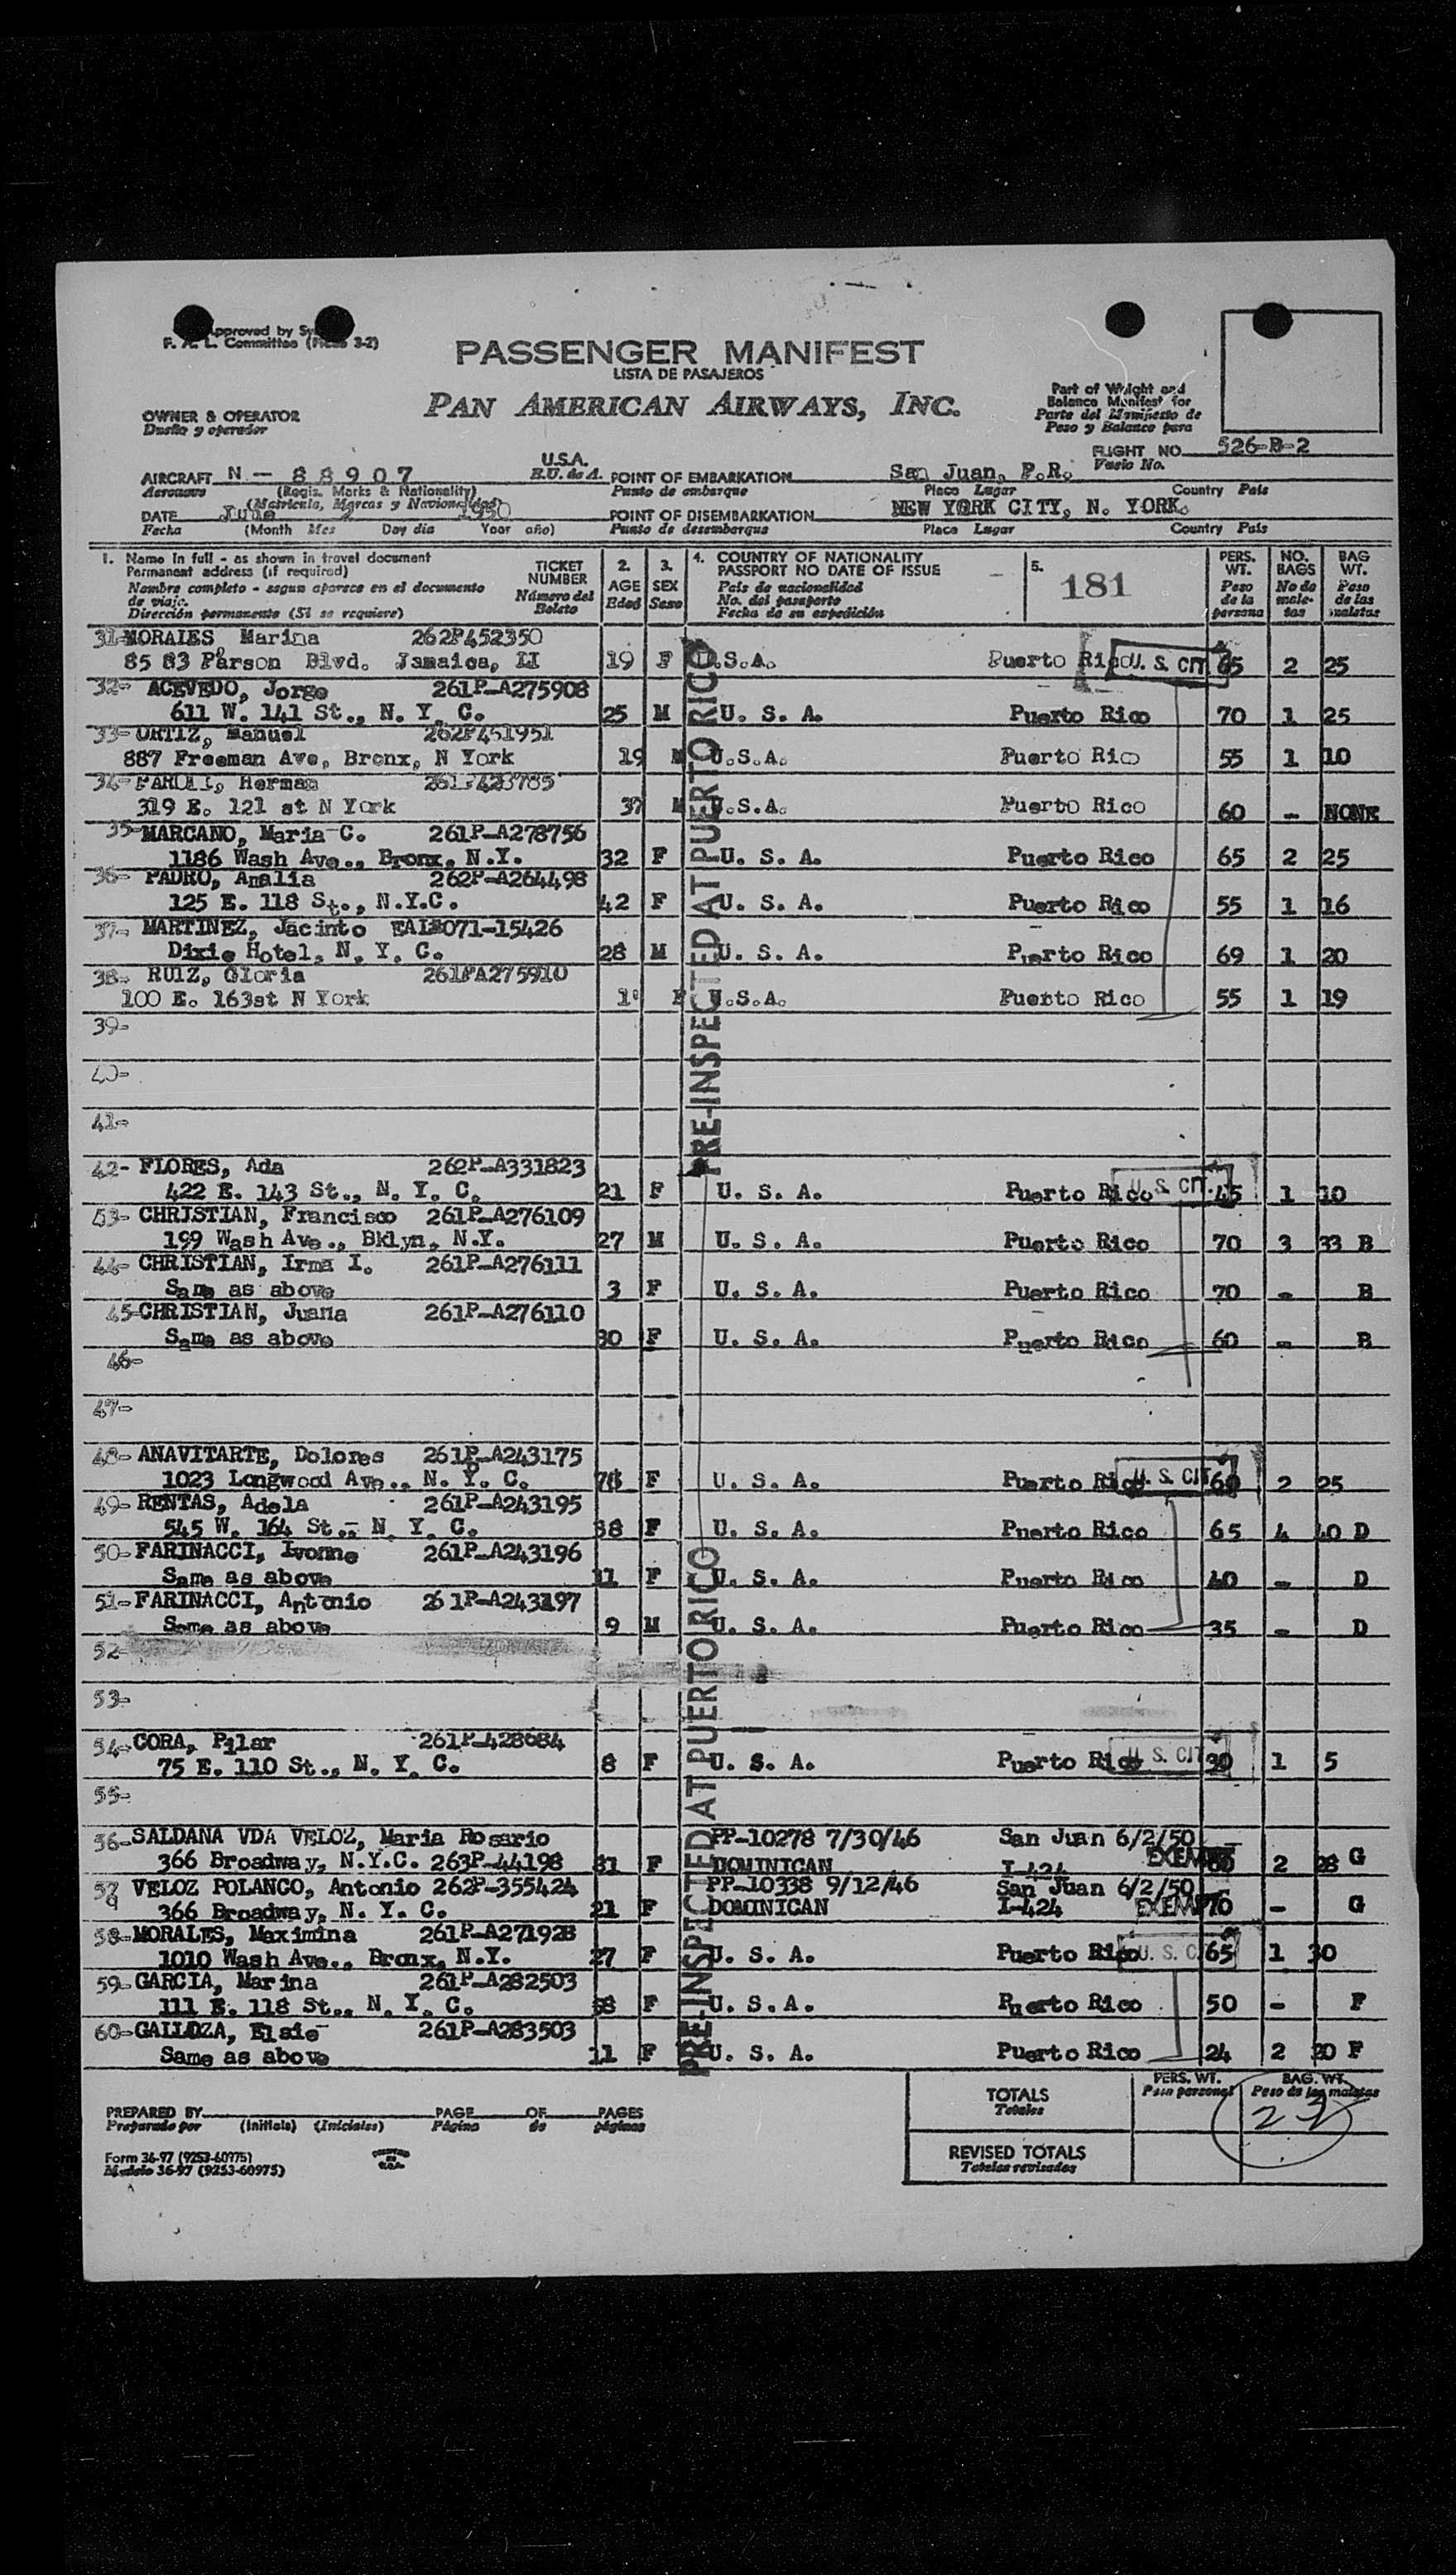 Approved by
F. A. L. Committee 3-2)
PASSENGER MANIFEST
LISTA DE PASAJEROS
PAN AMERICAN AIRWAYS, INC.
Part of Weight and
Balance Manifest for
Parte del Manifiesto de
Peso y Balance para
OWNER & OPERATOR
Dueño y operador
FLIGHT NO. 526-B-2
Vuelo No.
AIRCRAFT N - 88907 U.S.A. POINT OF EMBARKATION San Juan, P.R.
Aeronave (Regis. Marks & Nationality) E.U. de A. Punto de embarque Place Lugar Country País
(Matrícula, Marcas y Nacionalidad)
DATE June 2 1950 POINT OF DISEMBARKATION NEW YORK CITY, N. YORK.
Fecha (Month Mes Day día Year año) Punto de desembarque Place Lugar Country País
1. Name in full - as shown in travel document
Permanent address (if required)
Nombre completo - segun aparece en el documento
de viaje.
Dirección permanente (Si se requiere)
TICKET
NUMBER
Número del
Boleto
2.
AGE
Edad
3.
SEX
Sexo
4. COUNTRY OF NATIONALITY
PASSPORT NO DATE OF ISSUE
País de nacionalidad
No. del pasaporte
Fecha de su expedición
5. 181
PERS.
WT.
Peso
de la
persona
NO.
BAGS
No de
male-
tas
BAG
WT.
Peso
de las
maletas
31-MORALES Marina 262P452350
85 83 Parson Blvd. Jamaica, LI 19 F U.S.A. Puerto Rico U. S. CIT 65 2 25
32- ACEVEDO, Jorge 261P-A275908
611 W. 141 St., N. Y. C. 25 M U. S. A. Puerto Rico 70 1 25
33- ORTIZ, Manuel 262P451951
887 Freeman Ave, Bronx, N York 19 M U.S.A. Puerto Rico 55 1 10
34- Herman 261P423785
319 E. 121 st N York 37 M U.S.A. Puerto Rico 60 - NONE
35-MARCANO, Maria C. 261P-A278756
1186 Wash Ave., Bronx, N.Y. 32 F U. S. A. Puerto Rico 65 2 25
36- PADRO, Analia 262P-A264498
125 E. 118 St., N.Y.C. 42 F U. S. A. Puerto Rico 55 1 16
37- MARTINEZ, Jacinto 071-15426
Dixie Hotel, N. Y. C. 28 M U. S. A. Puerto Rico 69 1 20
38- RUIZ, Gloria 261PA275910
100 E. 163st N York F U.S.A. Puerto Rico 55 1 19
39-
40-
41-
PRE-INSPECTED AT PUERTO RICO
42- FLORES, Ada 262P-A331823
422 E. 143 St., N. Y. C. 21 F U. S. A. Puerto Rico U. S. CIT. 45 1 10
53- CHRISTIAN, Francisco 261P-A276109
199 Wash Ave., Bklyn, N.Y. 27 M U. S. A. Puerto Rico 70 3 33 B
44- CHRISTIAN, Irma I. 261P-A276111
Same as above 3 F U. S. A. Puerto Rico 70 - B
45-CHRISTIAN, Juana 261P-A276110
Same as above 30 F U. S. A. Puerto Rico 60 - B
46-
47-
48- ANAVITARTE, Dolores 261P-A243175
1023 Longwood Ave., N. Y. C. F U. S. A. Puerto Rico U. S. CIT 60 2 25
49- RENTAS, Adela 261P-A243195
545 W. 164 St.- N. Y. C. 38 F U. S. A. Puerto Rico 65 4 40 D
50-FARINACCI, Ivonne 261P-A243196
Same as above 11 F U. S. A. Puerto Rico 40 - D
51-FARINACCI, Antonio 261P-A243197
Same as above 9 M U. S. A. Puerto Rico 35 - D
52-
53-
54-CORA, Pilar 261P-428684
75 E. 110 St., N. Y. C. 8 F U. S. A. Puerto Rico U. S. CIT 30 1 5
55-
56-SALDANA VDA VELOZ, Maria Rosario PP-10278 7/30/46 San Juan 6/2/50
366 Broadway, N.Y.C. 263P-44198 F DOMINICAN I-424 EXEMPT 2 28 G
57 VELOZ POLANCO, Antonio 262P-355424 PP-10338 9/12/46 San Juan 6/2/50
9 366 Broadway, N. Y. C. 21 F DOMINICAN I-424 EXEMPT 70 - G
58-MORALES, Maximina 261P-A271928
1010 Wash Ave., Bronx, N.Y. 27 F U. S. A. Puerto Rico U. S. C 65 1 30
59-GARCIA, Marina 261P-A282503
111 E. 118 St., N. Y. C. F U. S. A. Puerto Rico 50 - F
60-GALLOZA, Elsie 261P-A283503
Same as above 11 F U. S. A. Puerto Rico 24 2 20 F
PRE-INSPECTED AT PUERTO RICO
PREPARED BY PAGE OF PAGES
Preparado por (Initials) (Iniciales) Página de páginas
TOTALS
Totales
PERS. WT.
Peso personal
BAG. WT.
Peso de las maletas
REVISED TOTALS
Totales revisados
Form 36-97 (9253-60975)
Modelo 36-97 (9253-60975)